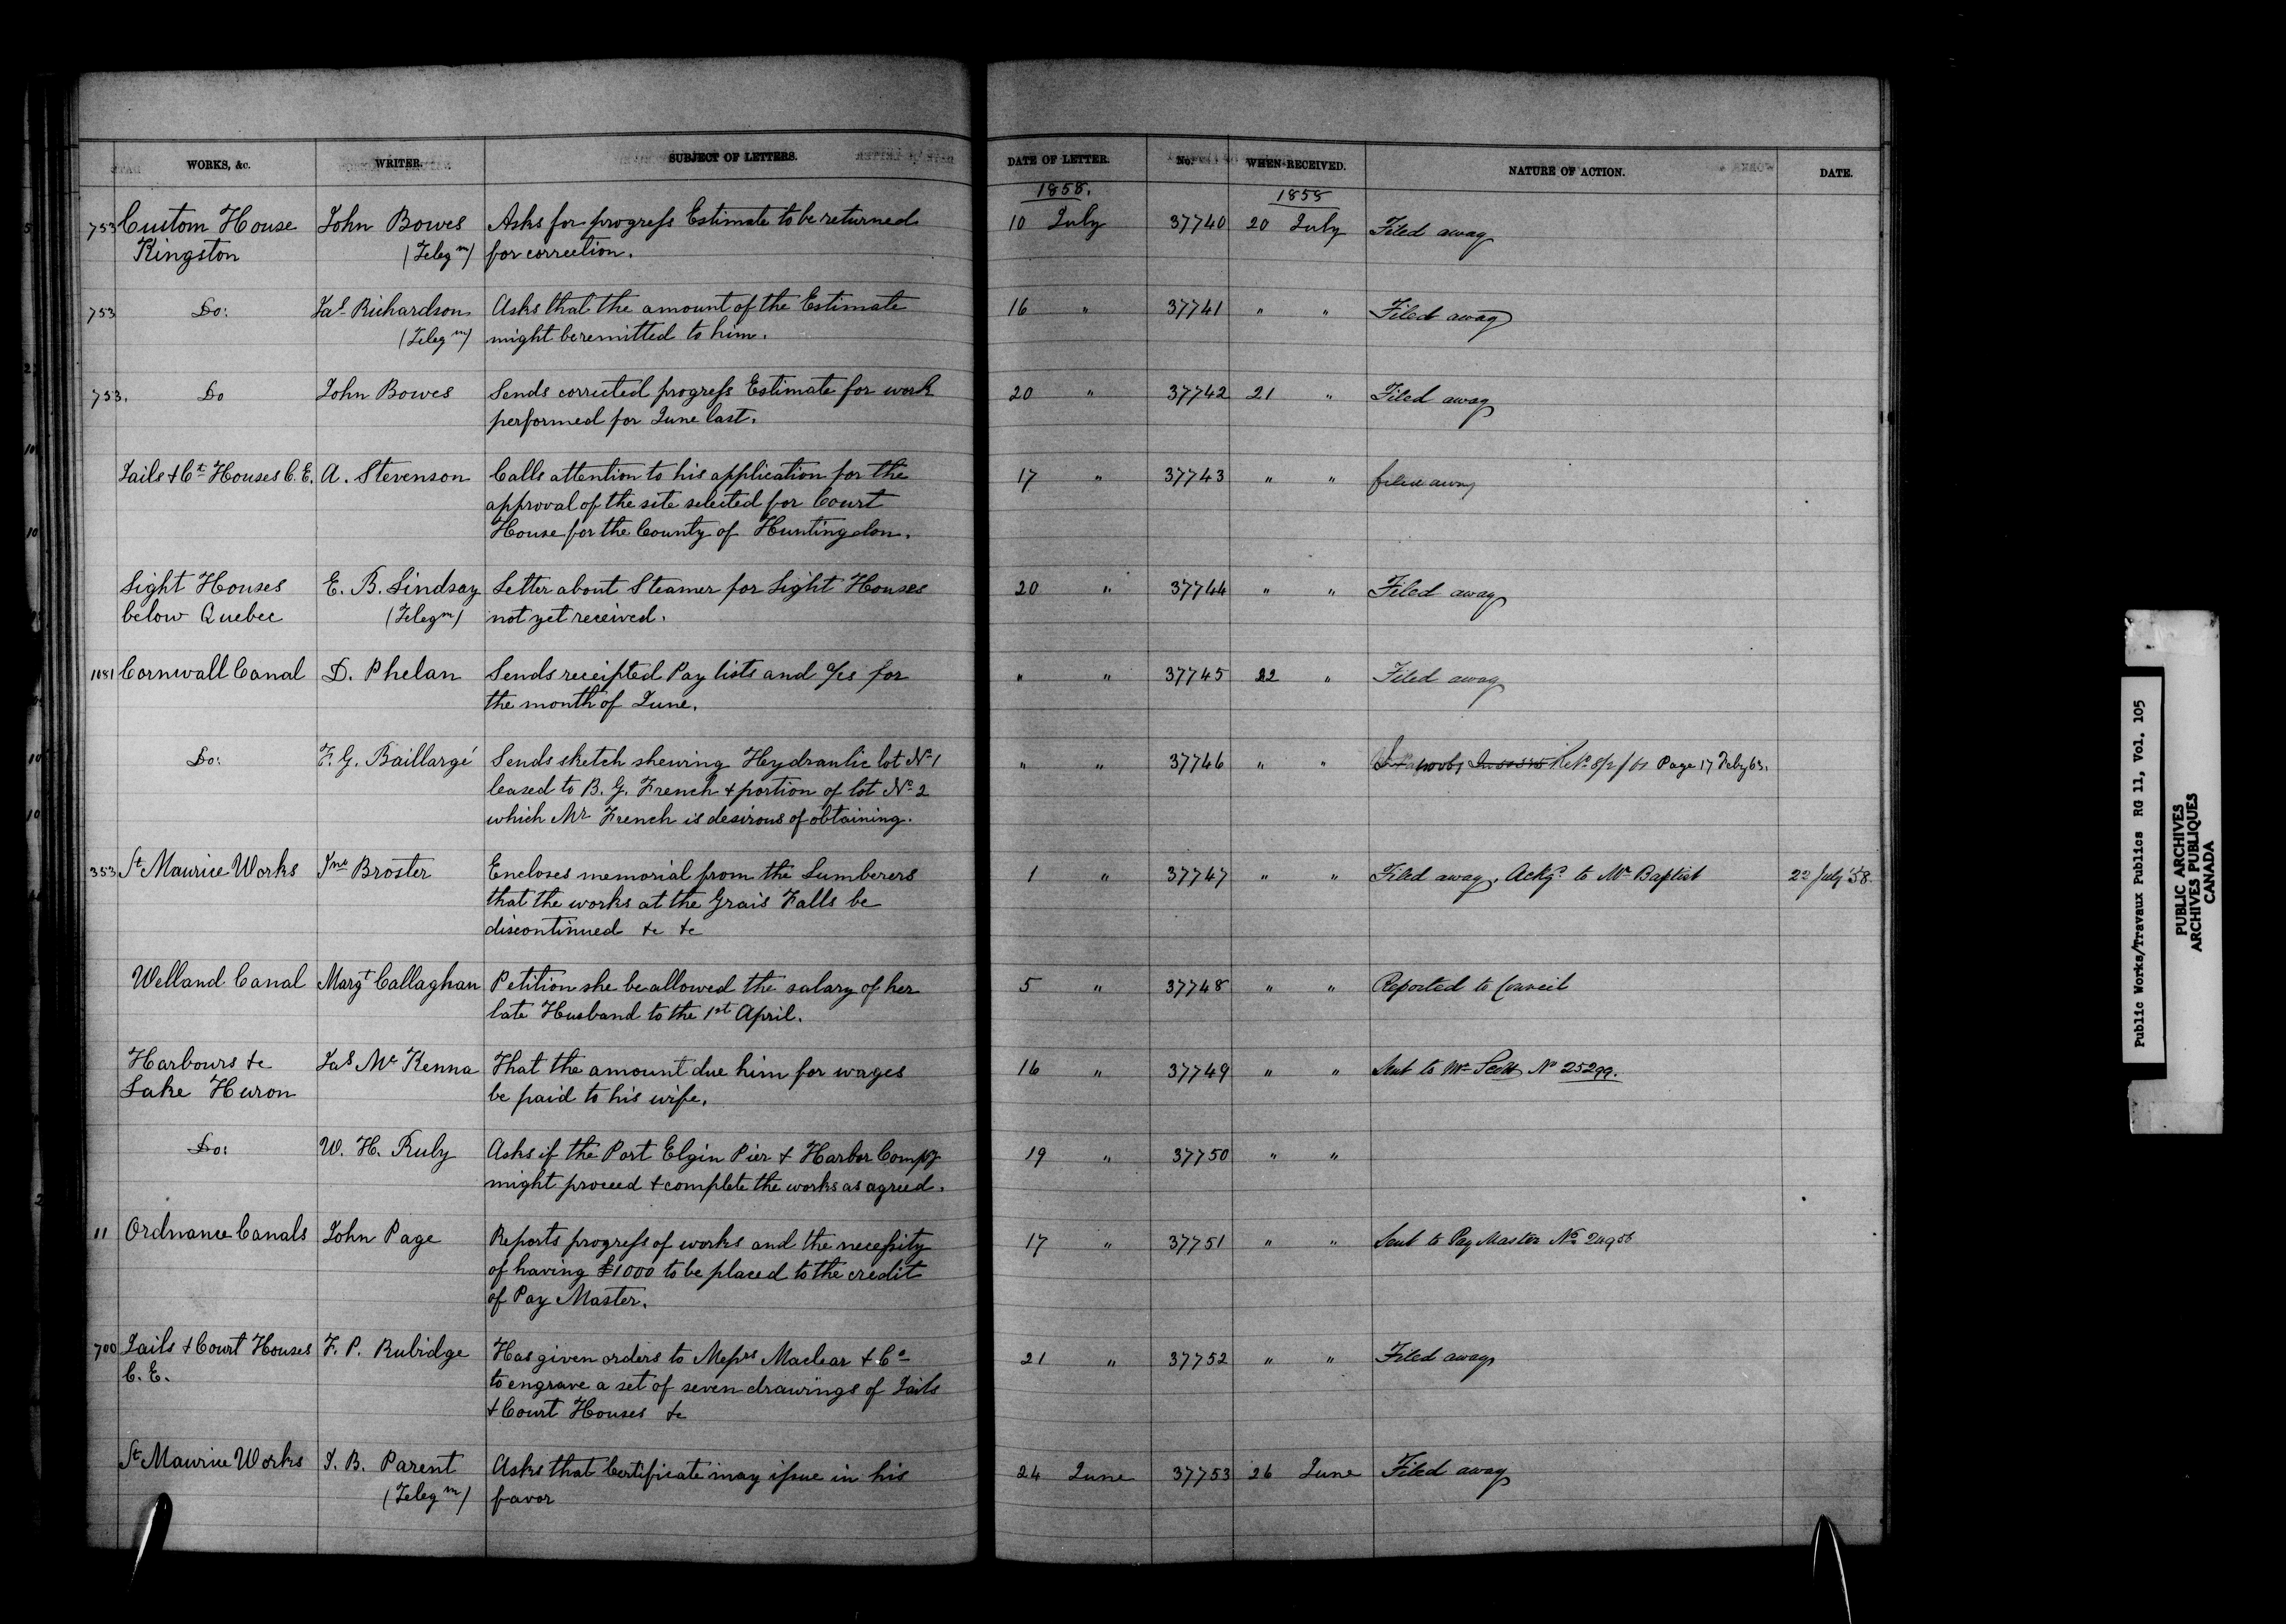 WORKS, &c. WRITER. SUBJECT OF LETTERS. DATE OF LETTER. No. WHEN RECEIVED. NATURE OF ACTION. DATE.
1858. 1858
753 Custom House John Bowes Asks for progress Estimate to be returned 10 July 37740 20 July Filed away
Kingston (Telegm) for correction.
753 Do: Jas Richardson Asks that the amount of the Estimate 16 " 37741 " " Filed away
(Telegm) might be remitted to him.
753. Do John Bowes Sends corrected progress Estimate for work 20 " 37742 21 " Filed away
performed for June last.
Jails & Ct Houses C.E. A. Stevenson Calls attention to his application for the 17 " 37743 " " filed away
approval of the site selected for Court
House for the County of Huntingdon.
Light Houses E. B. Lindsay Letter about Steamer for Light Houses 20 " 37744 " " Filed away
below Quebec (Telegm) not yet received.
1181 Cornwall Canal D. Phelan Sends receipted Pay lists and a/cs for " " 37745 22 " Filed away
the month of June.
Do: F. G. Baillargé Sends sketch shewing Hydraulic lot No 1 " " 37746 " " Page 17 Feby 63.
leased to B. G. French & portion of lot No 2
which Mr French is desirous of obtaining.
353 St Maurice Works Jno Broster Encloses memorial from the Lumberers 1 " 37747 " " Filed away, Ackg. to Mr Baptist 22 July '58.
that the works at the Grais Falls be
discontinued &c &c
Welland Canal Margt Callaghan Petition she be allowed the salary of her 5 " 37748 " " Reported to Council
late Husband to the 1st April.
Harbours &c Jas McKenna That the amount due him for wages 16 " 37749 " " Sent to Mr Scott No 25299.
Lake Huron be paid to his wife.
Do: W. H. Ruby Asks if the Port Elgin Pier & Harbor Compy 19 " 37750 " "
might proceed & complete the works as agreed.
11 Ordnance Canals John Page Reports progress of works and the necessity 17 " 37751 " " Sent to Pay Master No
of having $1000 to be placed to the credit
of Pay Master.
700 Jails & Court Houses F. P. Rubidge Has given orders to Messrs Maclear & Co 21 " 37752 " " Filed away
C. E. to engrave a set of seven drawings of Jails
& Court Houses &c
St Maurice Works J. B. Parent Asks that Certificate may issue in his 24 June 37753 26 June Filed away
(Telegm) favor
Public Works/Travaux Publics RG 11, Vol. 105
PUBLIC ARCHIVES
ARCHIVES PUBLIQUES
CANADA